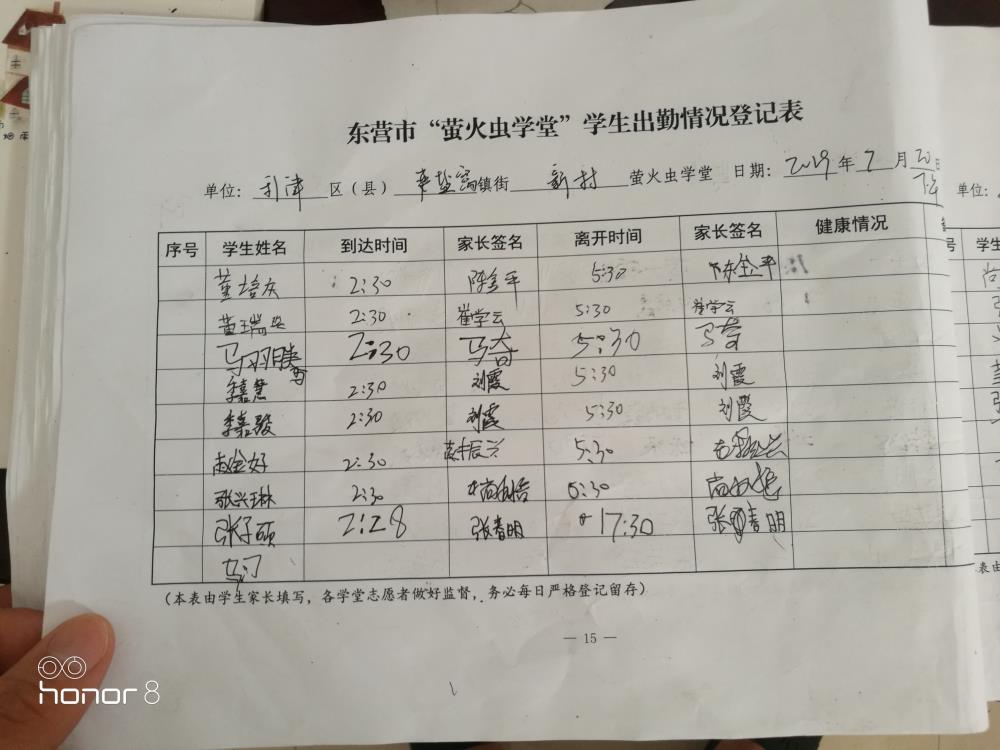 东营市“萤火虫学堂”学生出勤情况登记表
单位: 利津 区（县） 盐窝镇街 新村 萤火虫学堂 日期: 2019年7月20日
序号 学生姓名 到达时间 家长签名 离开时间 家长签名 健康情况
2:30 陈金平 5:30 陈金平
2:30 崔学云 5:30 崔学云
马羽腾 2:30 5:30
李嘉慧 2:30 刘霞 5:30 刘霞
李嘉骏 2:30 刘霞 5:30 刘霞
2:30 5:30
张兴琳 2:30 5:30
张子硕 2:28 张春明 17:30 张春明
（本表由学生家长填写，各学堂志愿者做好监督，务必每日严格登记留存）
— 15 —
单位:
honor 8